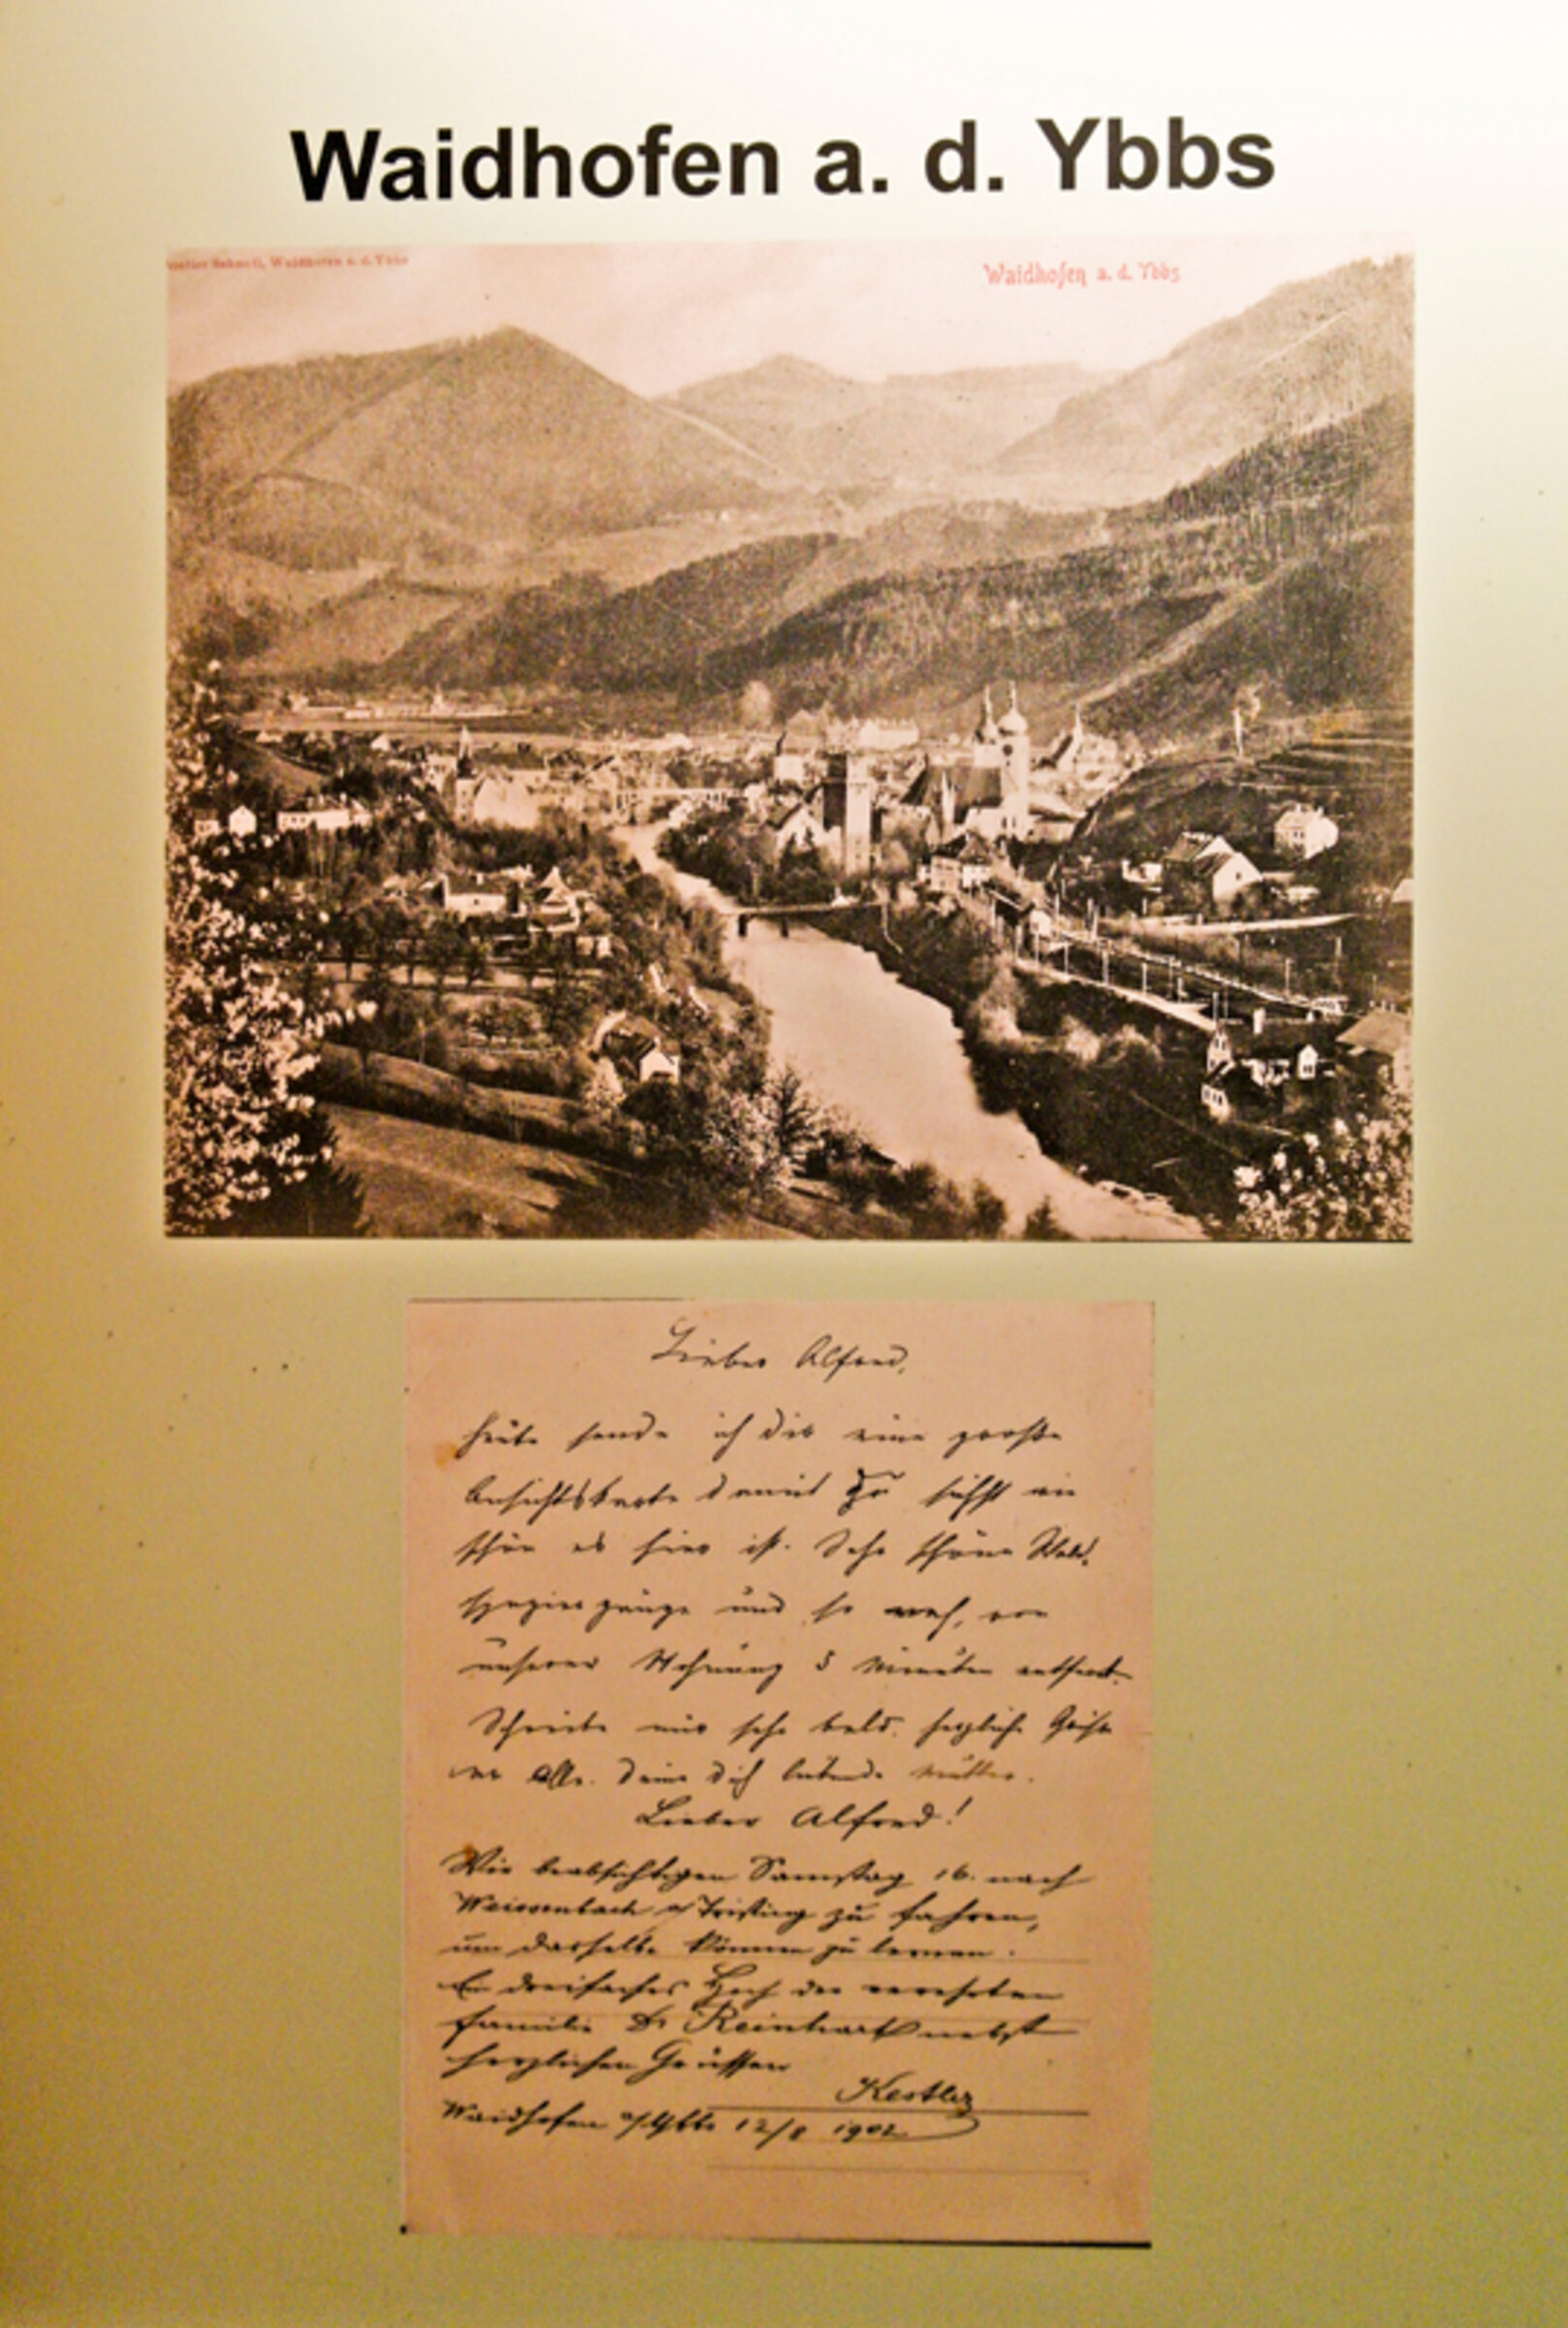 Waidhofen a. d. Ybbs
Waidhofen a. d. Ybbs
Waidhofen a. d. Ybbs
Lieber Alfred,
heute sende ich dir eine große
Ansichtskarte damit Du siehst wie
schön es hier ist. Sehr schöne Wald
spaziergänge und so nah, von
unserer Wohnung 5 Minuten entfernt.
Schreibe mir sehr bald. herzliche Grüße
an Alle. Deine dich liebende Mutter.
Lieber Alfred!
Wir beabsichtigen Samstag 16. nach
Weissenbach a/Triesting zu fahren,
um dasselbe können zu lernen.
Ein dreifaches Hoch der verehrten
Familie Dr Reinhart nebst
herzlichen Grüssen
Kestler
Waidhofen a/Ybbs 12/8 1902